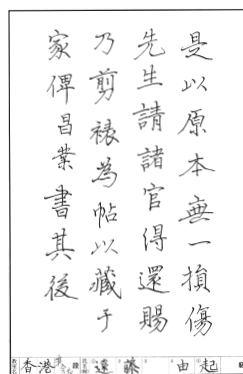 是以原本無一損傷
先生請諸官得還賜
乃剪裱為帖以藏于
家俾昌業書其後
香港
遠藤
由起